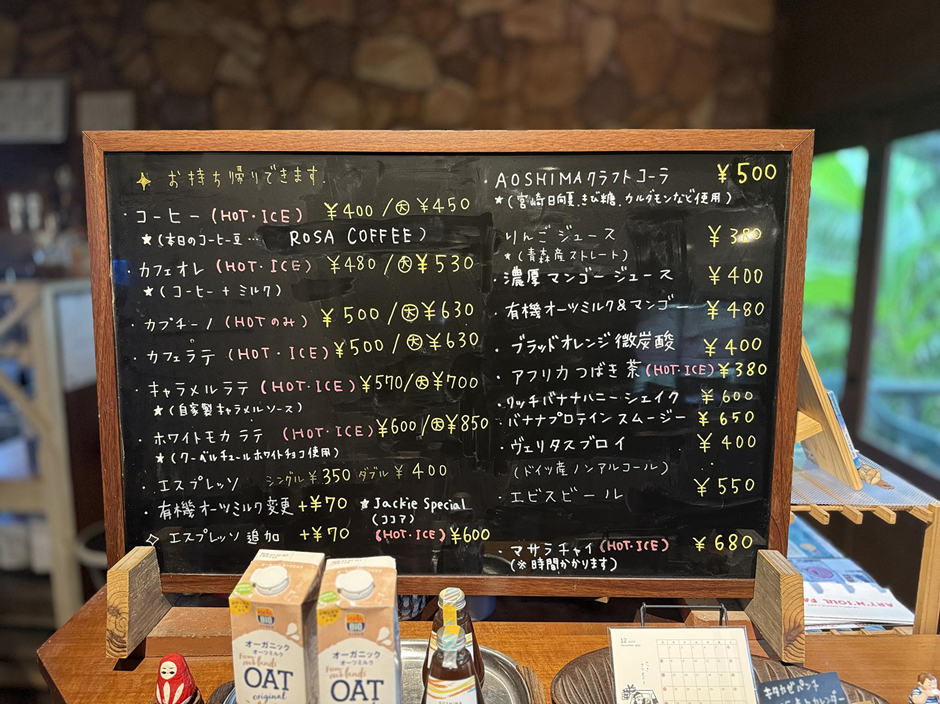 ✦ お持ち帰りできます.
・コーヒー (HOT・ICE) ¥400/大¥450
★(本日のコーヒー豆… ROSA COFFEE)
・カフェオレ (HOT・ICE) ¥480/大¥530
★(コーヒー+ミルク)
・カプチーノ (HOTのみ) ¥500/大¥630
・カフェラテ (HOT・ICE) ¥500/大¥630
・キャラメルラテ (HOT・ICE) ¥570/大¥700
★(自家製キャラメルソース)
・ホワイトモカラテ (HOT・ICE) ¥600/大¥850
★(クーベルチュールホワイトチョコ使用)
・エスプレッソ シングル¥350 ダブル¥400
・有機オーツミルク変更 +¥70
◇ エスプレッソ追加 +¥70
★Jackie Special
(ココア)
(HOT・ICE) ¥600
・AOSHIMAクラフトコーラ ¥500
★(宮崎日向夏、きび糖、カルダモンなど使用)
りんごジュース ¥380
★(青森産ストレート)
・濃厚マンゴージュース ¥400
・有機オーツミルク&マンゴー ¥480
・ブラッドオレンジ微炭酸 ¥400
・アフリカつばき茶(HOT・ICE) ¥380
・リッチバナナハニーシェイク ¥600
・バナナプロテインスムージー ¥650
・ヴェリタスブロイ ¥400
(ドイツ産ノンアルコール)
・エビスビール ¥550
・マサラチャイ(HOT・ICE) ¥680
(※時間かかります)
オーガニック
オーツミルク
OAT
original
オーガニック
オーツミルク
OAT
12
キタカゼパンチ
カレンダー
ART'N'SOUL